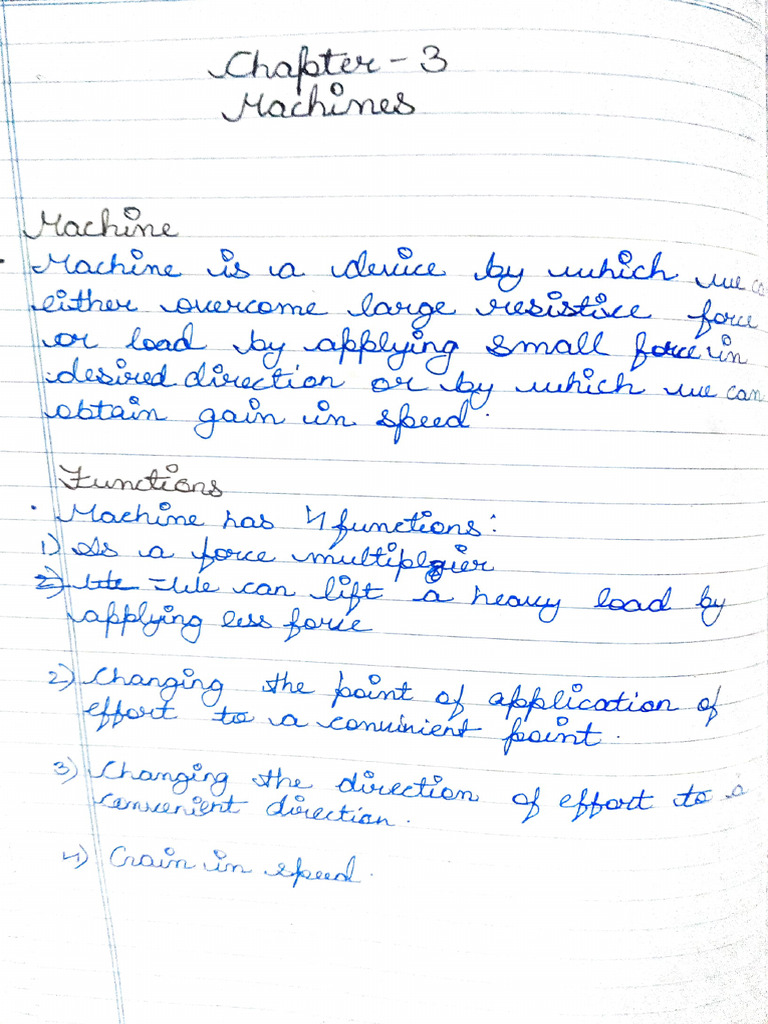 Chapter - 3
Machines
Machine
Machine is a device by which we
either overcome large resistive force
or load by applying small force in
desired direction or by which we can
obtain gain in speed.
Functions
· Machine has 4 functions:
1) As a force multiplier
2) We can lift a heavy load by
applying less force
2) Changing the point of application of
effort to a convinient point.
3) Changing the direction of effort to a
convenient direction.
4) Gain in speed.